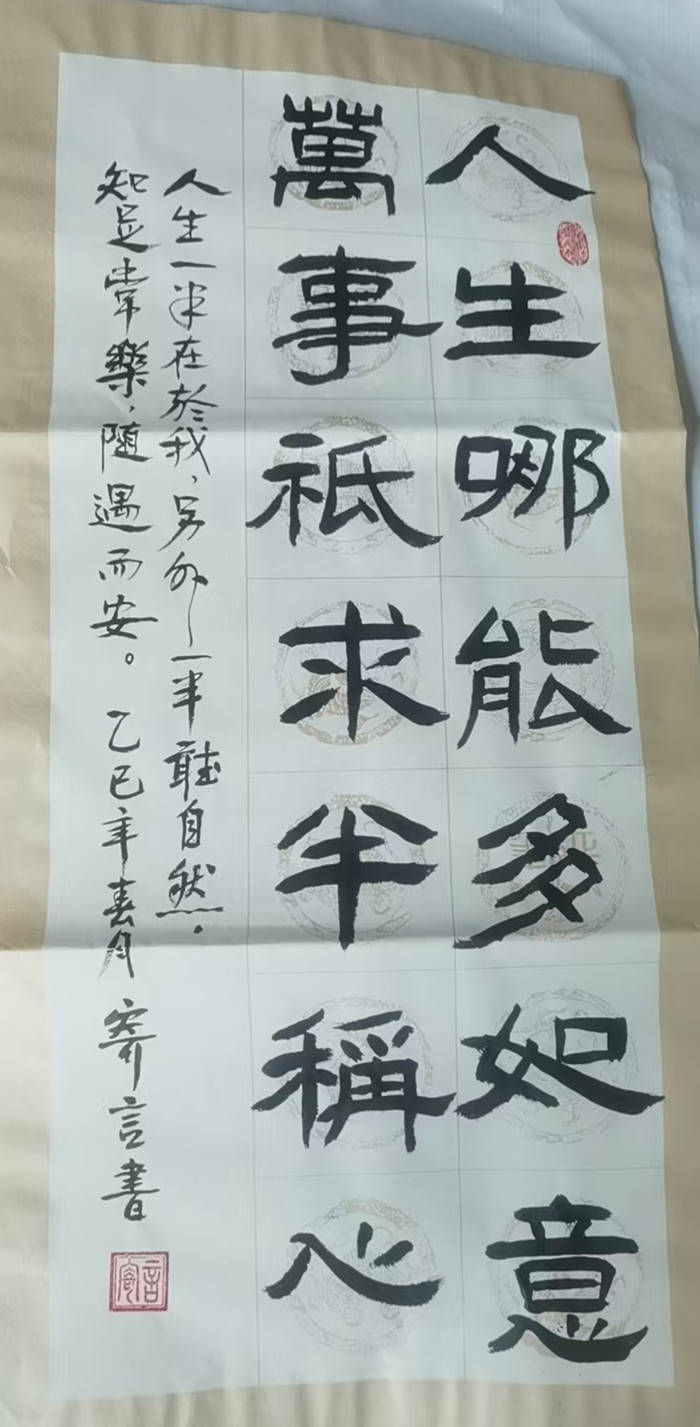 人生哪能多如意
萬事祇求半稱心
人生一半在於我，另外一半聽自然。
知足常樂，隨遇而安。乙巳年春月 寄言書